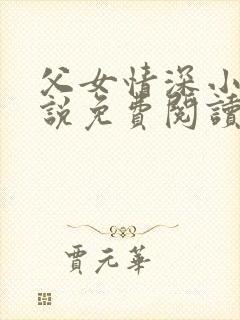 父女情深小
說免費閱讀
賈元華